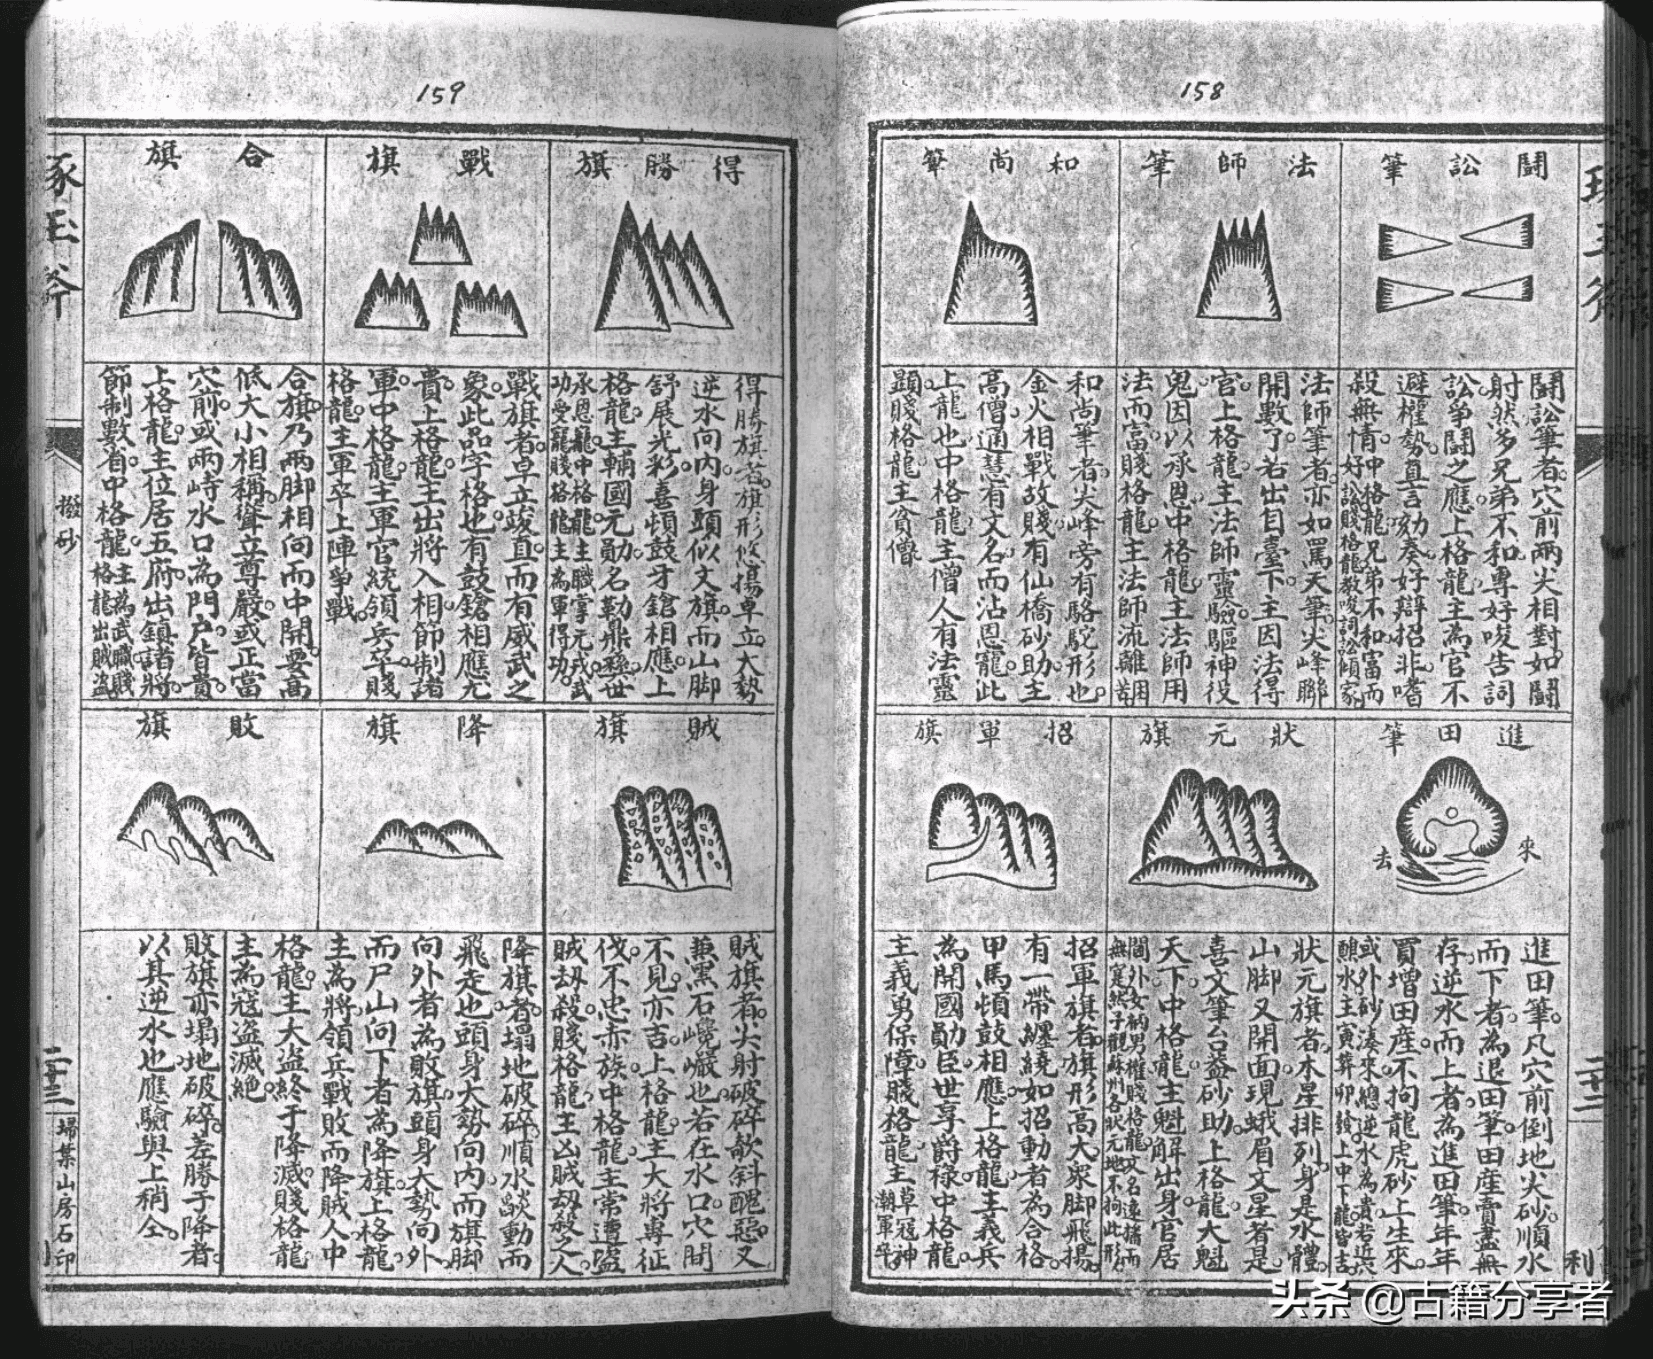 158
鬪訟筆
鬪訟筆者。穴前兩尖相對。如鬪
射然。多兄弟不和。專好唆告詞
訟爭鬪之應。上格龍。主為官不
避權勢。直言劾奏。好辯招非。嗜
殺無情。中格龍。兄弟不和。富而
好訟。賤格龍。教唆詞訟傾家。
法師筆
法師筆者。亦如罵天筆。尖峰聯
開數了。若出自臺下。主因法得
官。上格龍。主法師靈驗。驅神役
鬼。因以承恩。中格龍。主法師用
法而富。賤格龍。主法師流離困苦
和尚筆
和尚筆者。尖峰旁有駱駝形也。
金火相戰故賤。有仙橋砂助。主
高僧通慧。有文名而沾恩寵。此
上龍也。中格龍。主僧人有法靈
顯。賤格龍。主貧僧
進田筆
來
去
進田筆。凡穴前倒地尖砂。順水
而下者。為退田筆。田產賣盡無
存。逆水而上者。為進田筆。年年
買增田產。不拘龍虎砂上生來。
或外砂湊來。總逆水為貴。若近穴
醮水。主寅葬卯發。上中下龍皆吉
狀元旗
狀元旗者。木星排列。身是水體。
山脚又開面。現蛾眉文星者是。
喜文筆台蓋砂助。上格龍。大魁
天下。中格龍。主魁解出身。官居
閫外。女納男權。賤格龍。又名遠播而
無寔然。予觀蘇州各狀元地。不拘此形
招軍旗
招軍旗者。旗形高大。眾脚飛揚。
有一帶纏繞。如招動者。為合格。
甲馬頓鼓相應。上格龍。主義兵
為開國勛臣。世享爵祿。中格龍
主義勇保障。賤格龍。主草冠神
潮軍卒
利
159
得勝旗
得勝旗者。旗形悠揚卓立。大勢
逆水向內。身頭似文旗。而山脚
舒展光彩。喜頓鼓牙鎗相應。上
格龍。主輔國元勛。名勒鼎彝。世
承恩寵。中格龍。主職掌元戎。武
功受寵。賤格龍。主為軍得功。
戰旗
戰旗者。卓立竣直。而有威武之
象。此品字格也。有鼓鎗相應尤
貴。上格龍。主出將入相。節制諸
軍。中格龍。主軍官統領兵卒。賤
格龍。主軍卒上陣爭戰。
合旗
合旗乃兩脚相向而中開。要高
低大小相稱。聳立尊嚴。或正當
穴前。或兩峙水口為門戶。皆貴。
上格龍。主位居五府。出鎮諸將。
節制數省。中格龍。主為武職。賤
格龍出賊盜。
賊旗
賊旗者。尖射破碎。欹斜醜惡。又
兼黑石巉巖也。若在水口。穴間
不見亦吉。上格龍。主大將專征
伐。不忠赤族。中格龍。主常遭盜
賊刼殺。賤格龍。主凶賊刼殺之人。
降旗
降旗者。塌地破碎。順水飈動而
飛走也。頭身大勢向內。而旗脚
向外者。為敗旗。頭身大勢向外
而尸山向下者。為降旗。上格龍。
主為將。領兵戰敗而降賊人。中
格龍。主大盜終于降滅。賤格龍
主為寇盜滅絕。
敗旗
敗旗亦塌地破碎。差勝于降者。
以其逆水也。應驗與上稍仝。
琢玉斧
撥砂
二十三
掃葉山房石印
头条 @古籍分享者